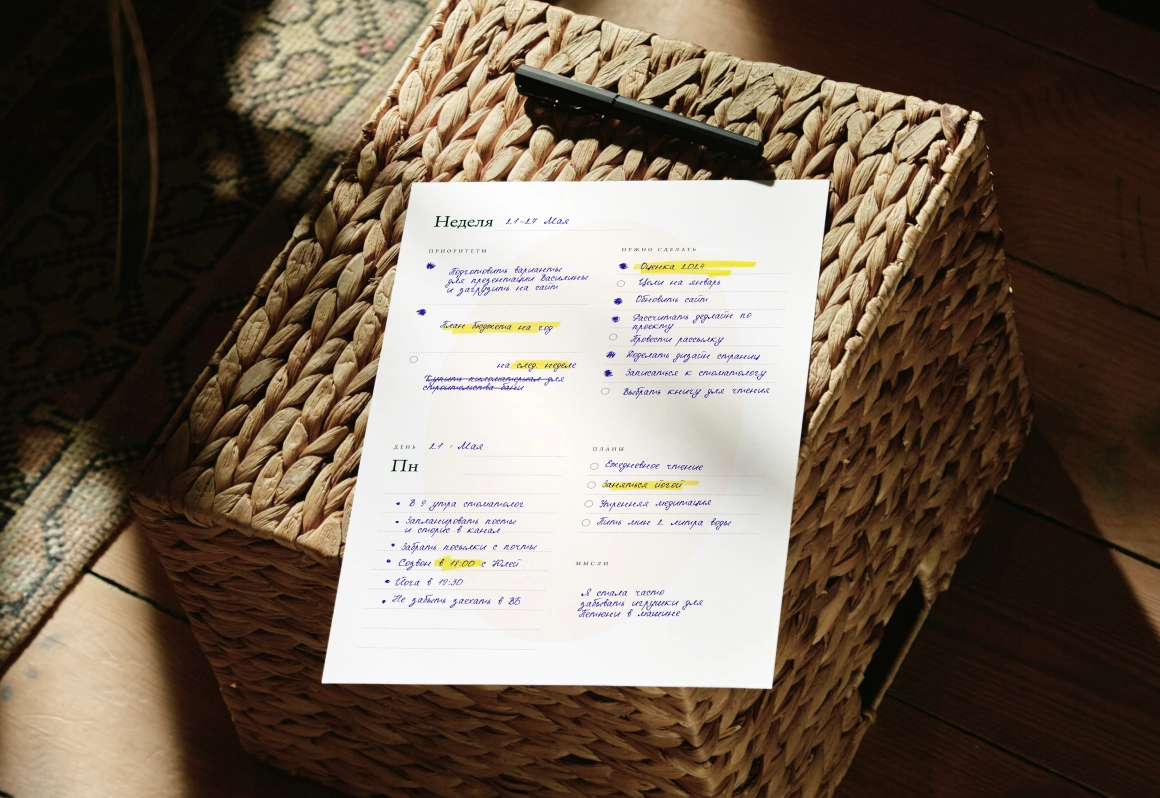 Неделя 21-27 Мая
ПРИОРИТЕТЫ
Подготовить варианты
для презентации Василины
и загрузить на сайт
План бюджета на год
на след. неделе
Купить пиломатериал для
строительства бани
НУЖНО СДЕЛАТЬ
Оценка 2024
Цели на январь
Обновить сайт
Рассчитать дедлайн по
проекту
Провести рассылку
Доделать дизайн страниц
Записаться к стоматологу
Выбрать книгу для чтения
ДЕНЬ 21 Мая
Пн
В 9 утра стоматолог
Запланировать посты
и сторис в канал
Забрать посылки с почты
Созвон в 18:00 с Юлей
Йога в 19:30
Не забыть заехать в ВБ
ПЛАНЫ
Ежедневное чтение
Заняться йогой
Утренняя медитация
Пить мин 2 литра воды
МЫСЛИ
Я стала часто
забывать игрушки для
Петюни в машине